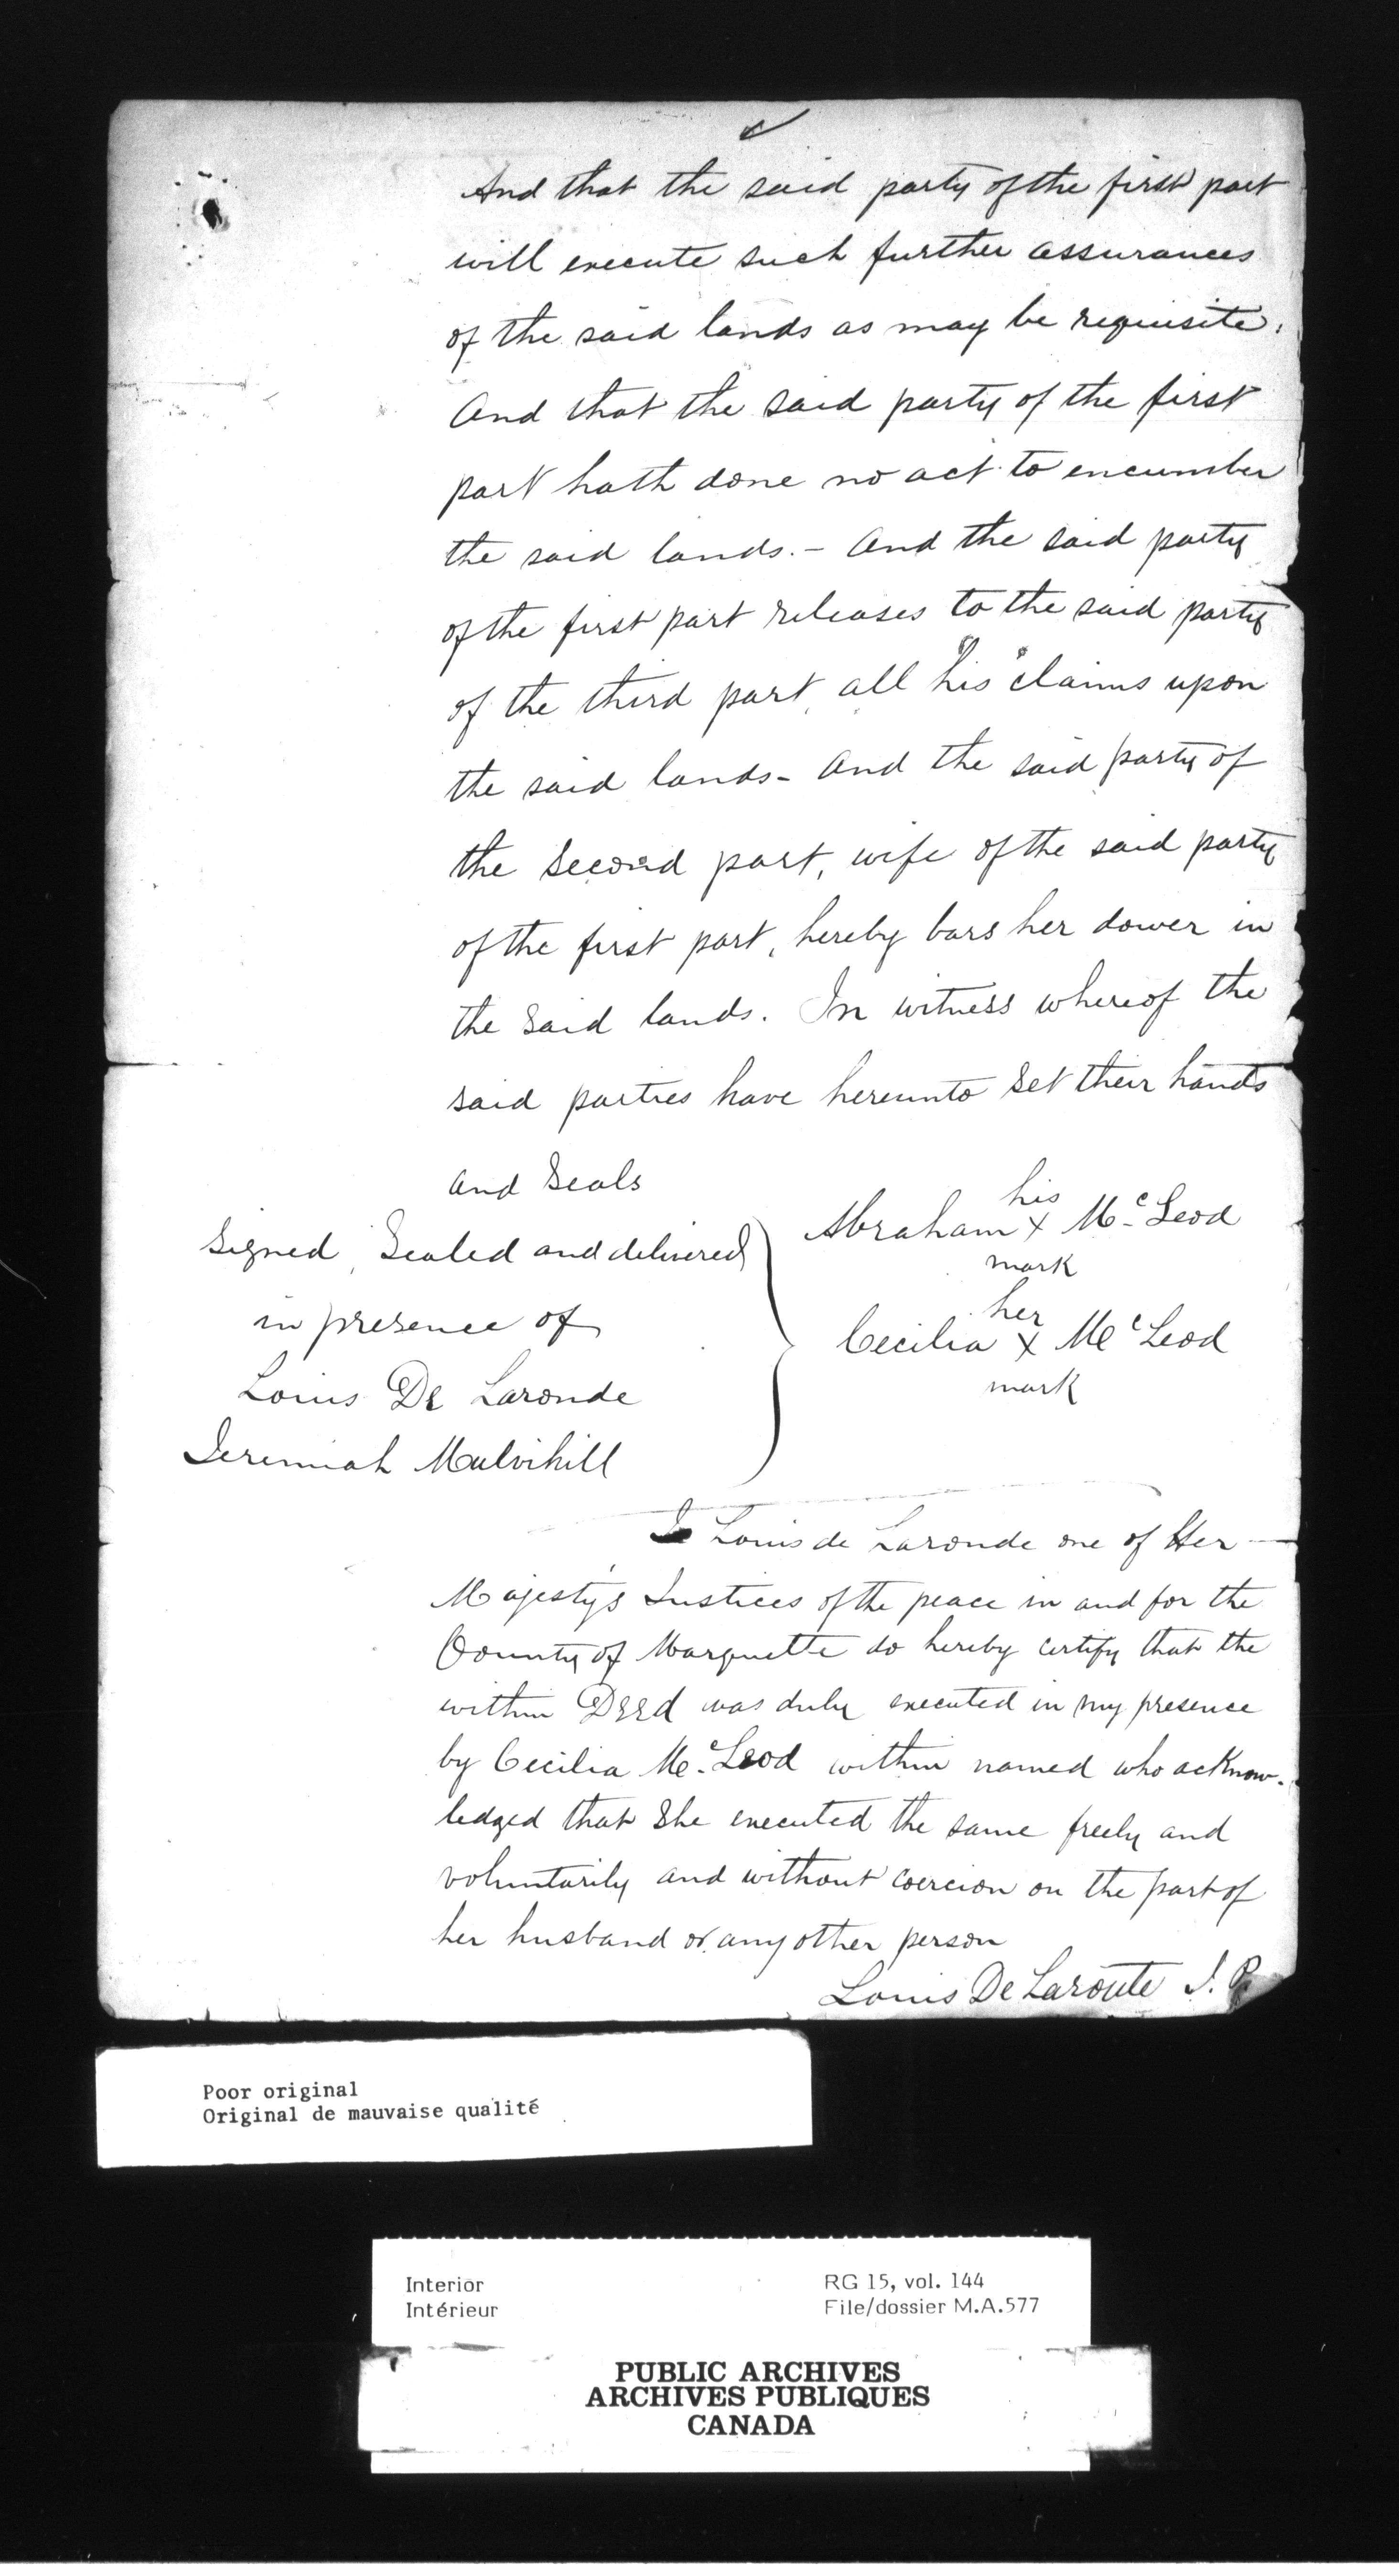 And that the said party of the first part
will execute such further assurances
of the said lands as may be requisite.
And that the said party of the first
part hath done no act to encumber
the said lands. - And the said party
of the first part releases to the said party
of the third part, all "his" claims upon
the said lands - And the said party of
the Second part, wife of the said party
of the first part, hereby bars her dower in
the said lands. In witness whereof the
said parties have hereunto set their hands
and Seals
Signed, Sealed and delivered
in presence of
Louis De Laronde
Jeremiah Mulvihill
his
Abraham x McLeod
mark
her
Cecilia x McLeod
mark
I Louis de Laronde one of Her
Majesty's Justices of the peace in and for the
County of Marquette do hereby certify that the
within Deed was duly executed in my presence
by Cecilia McLeod within named who acknow-
ledged that she executed the same freely and
voluntarily and without coercion on the part of
her husband or any other person
Louis De Laronte J. P.
Poor original
Original de mauvaise qualité
Interior
Intérieur
RG 15, vol. 144
File/dossier M.A.577
PUBLIC ARCHIVES
ARCHIVES PUBLIQUES
CANADA